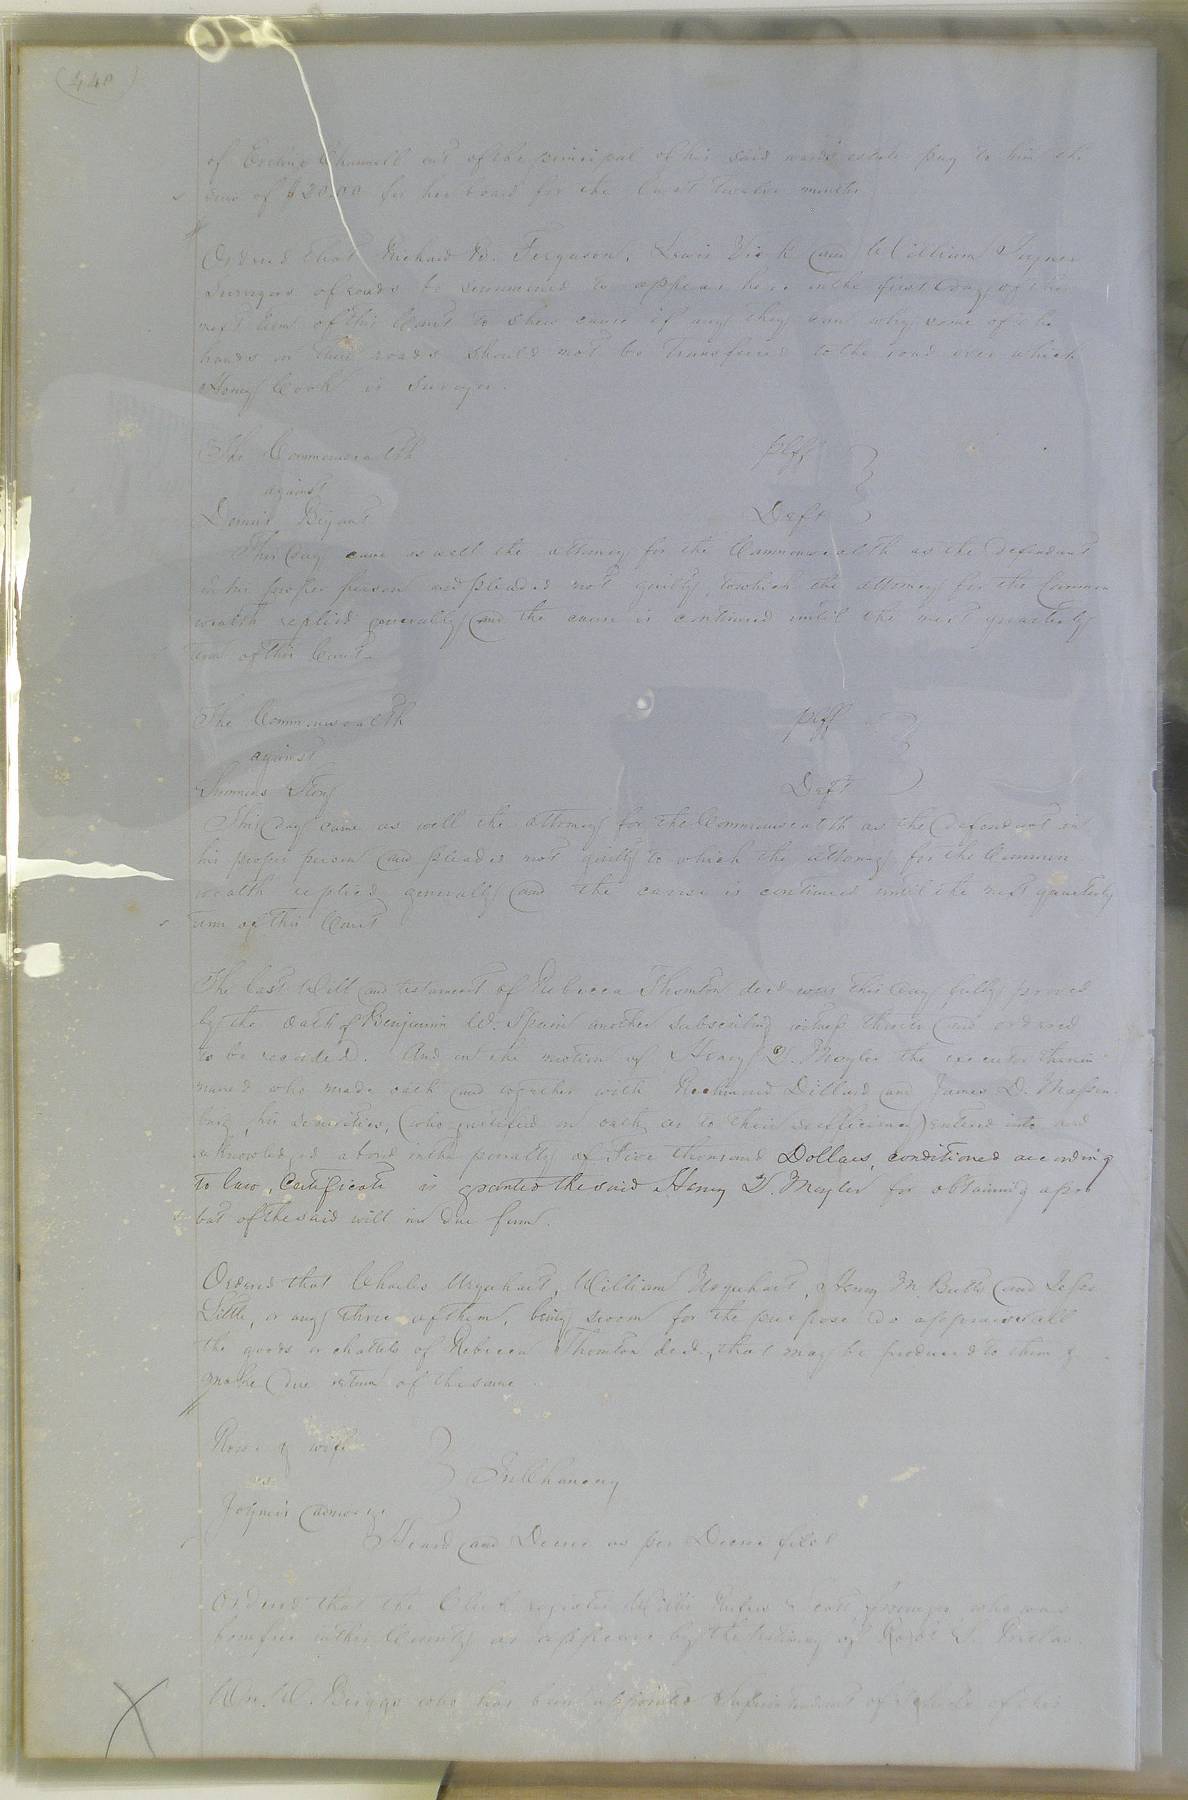 (440)
of Eveline Channell out of the principal of his said wards estate pay to him the
sum of $20.00 for her board for the last twelve months
Ordered that Richard B. Ferguson, Lewis Vick and William Joyner
Surveyors of roads be summoned to appear here on the first day of the
next term of this Court to shew cause if any they can why some of the
hands on their roads should not be transferred to the road over which
Henry Cook is Surveyor.
The Commonwealth Plff
against
Dennis Bryant Deft
This day came as well the attorney for the Commonwealth as the defendant
in his proper person and pleaded not guilty to which the attorney for the Common
wealth replied generally and the cause is continued until the next quarterly
term of this Court
The Commonwealth Plff
against
Deft
This day came as well the attorney for the Commonwealth as the defendant in
his proper person and pleaded not guilty to which the attorney for the Common
wealth replied generally and the cause is continued until the next quarterly
term of this Court
The last Will and testament of Rebecca Thomton decd was this day fully proved
by the oath of Benjamin W. Spain another subscribing witness thereto and ordered
to be recorded. And on the motion of Henry T. Moyler the executor therein
named who made oath and together with Richmond Dillard and James D. Massen
burg, his securities, (who justified on oath as to their sufficiency) entered into and
acknowledged a bond in the penalty of Five thousand Dollars, conditioned according
to law, Certificate is granted the said Henry T. Moyler for obtaining a pro
bat of the said will in due form.
Ordered that Charles Urquhart, William Urquhart, Henry M. Butts and Jesse
Little, or any three of them, being sworn for the purpose do appraise all
the goods or chattels of Rebecca Thomton decd, that may be produced to them &
make due return of the same
Rose & wife
vs In Chancery
Joyners admor &c
Heard and Decree as per Decree filed
Ordered that the Clerk register Scott, who was
born free in this County as appears by the testimony of
Wm. W. Briggs who has been appointed Superintendent of Schools of this